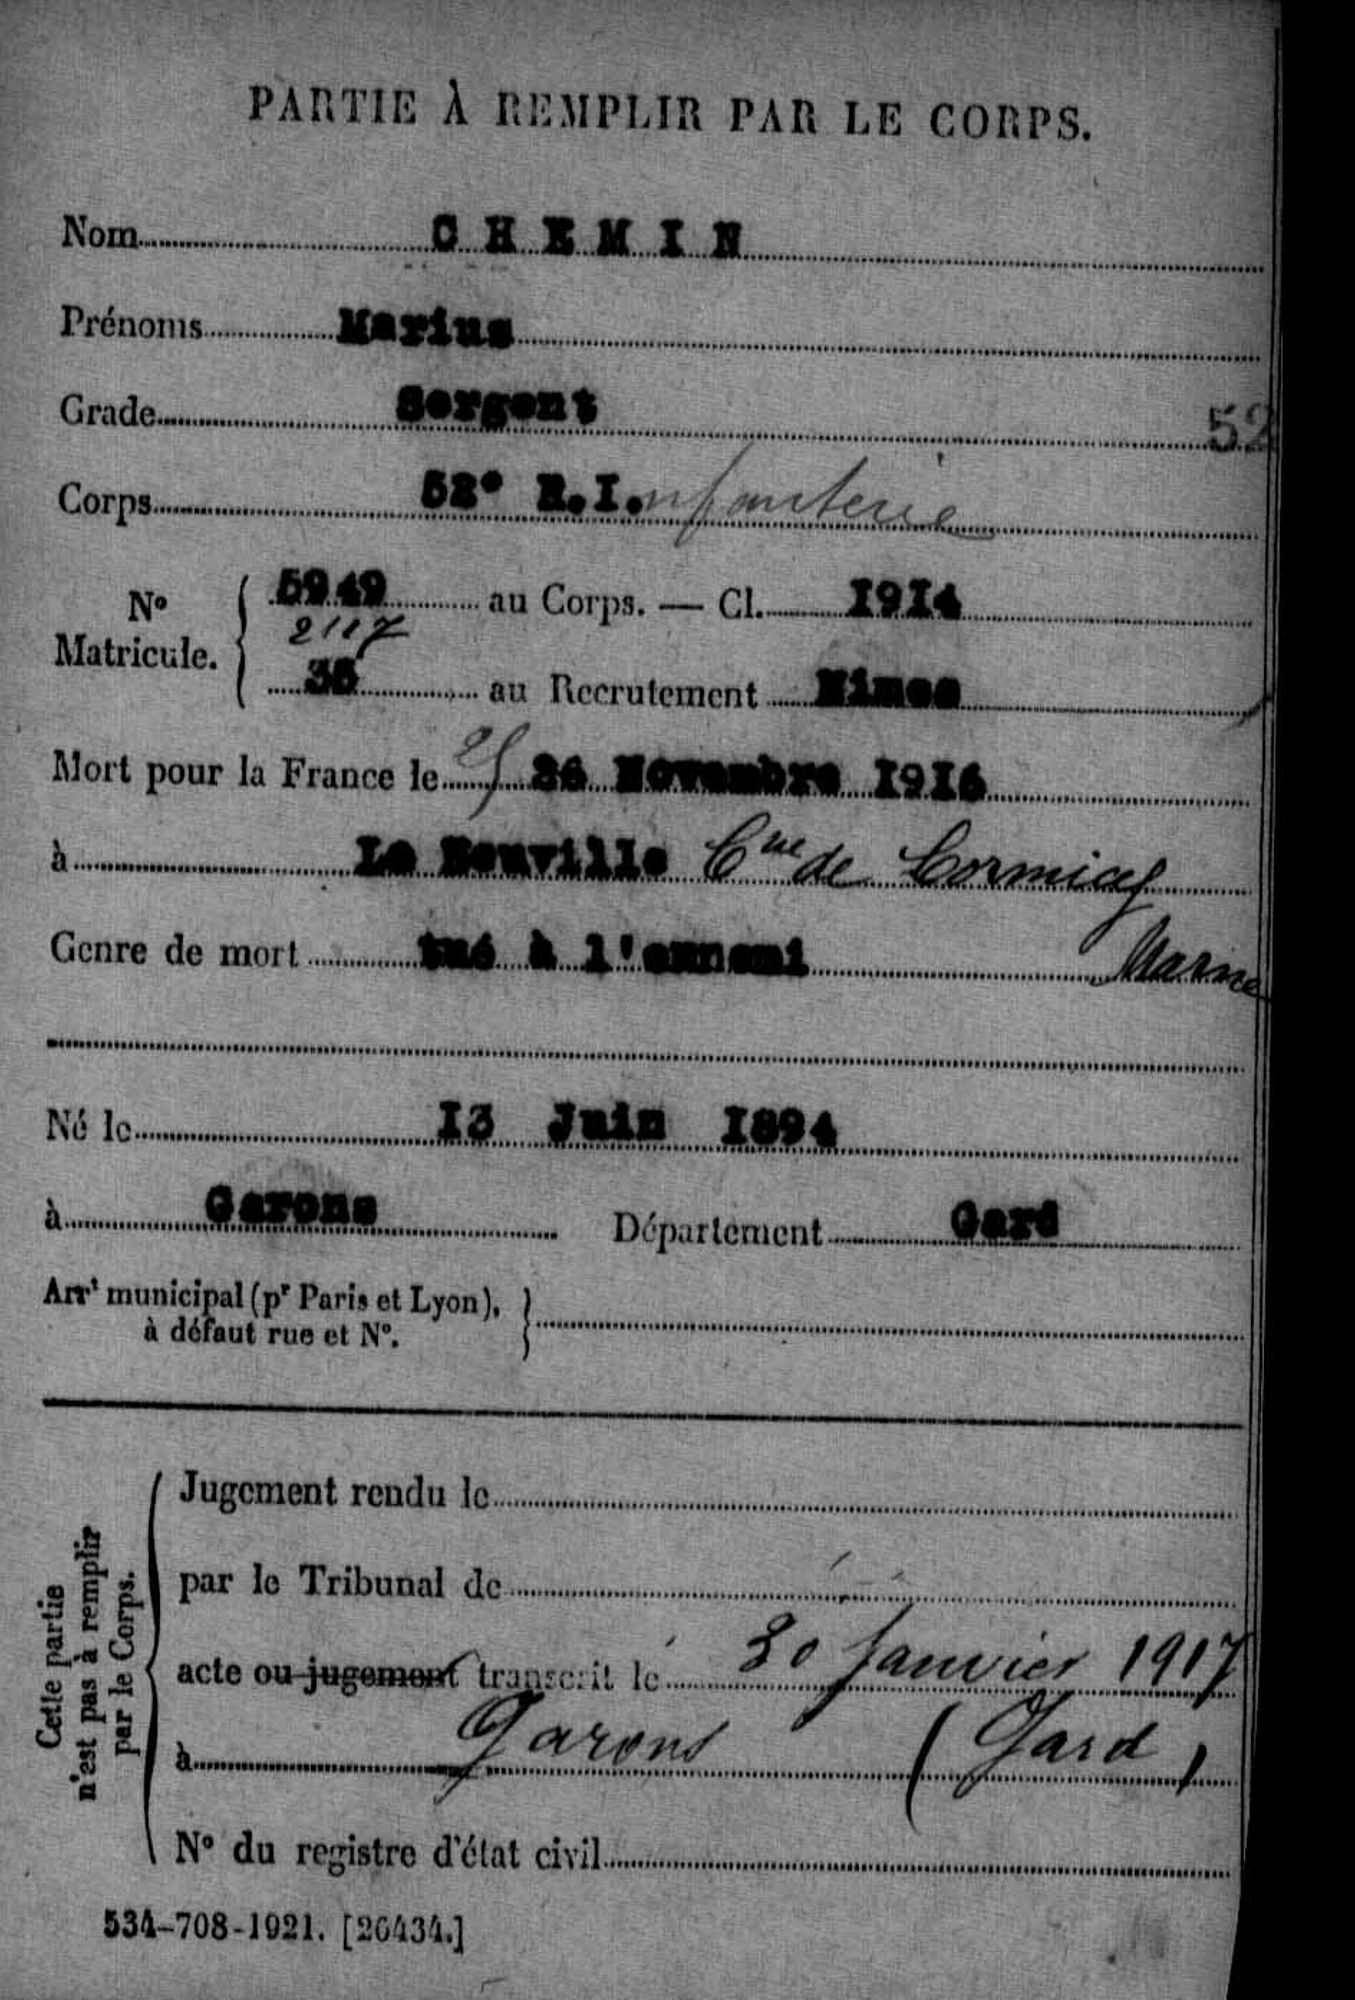 PARTIE À REMPLIR PAR LE CORPS.
Nom CHEMIN
Prénoms Marius
Grade Sergent
52
Corps 52e R.I.nfanterie
No Matricule. 5949 au Corps. — Cl. 1914
2117
35 au Recrutement Nimes
Mort pour la France le 25 26 Novembre 1916
à La Neuville Cne de Cormicy
Marne
Genre de mort tué à l'ennemi
Né le 13 Juin 1894
à Garons Département Gard
Arrt municipal (pr Paris et Lyon),
à défaut rue et No.
Cette partie
n'est pas à remplir
par le Corps.
Jugement rendu le
par le Tribunal de
acte ou jugement transcrit le 30 Janvier 1917
à Garons (Gard)
No du registre d'état civil
534-708-1921. [26434.]